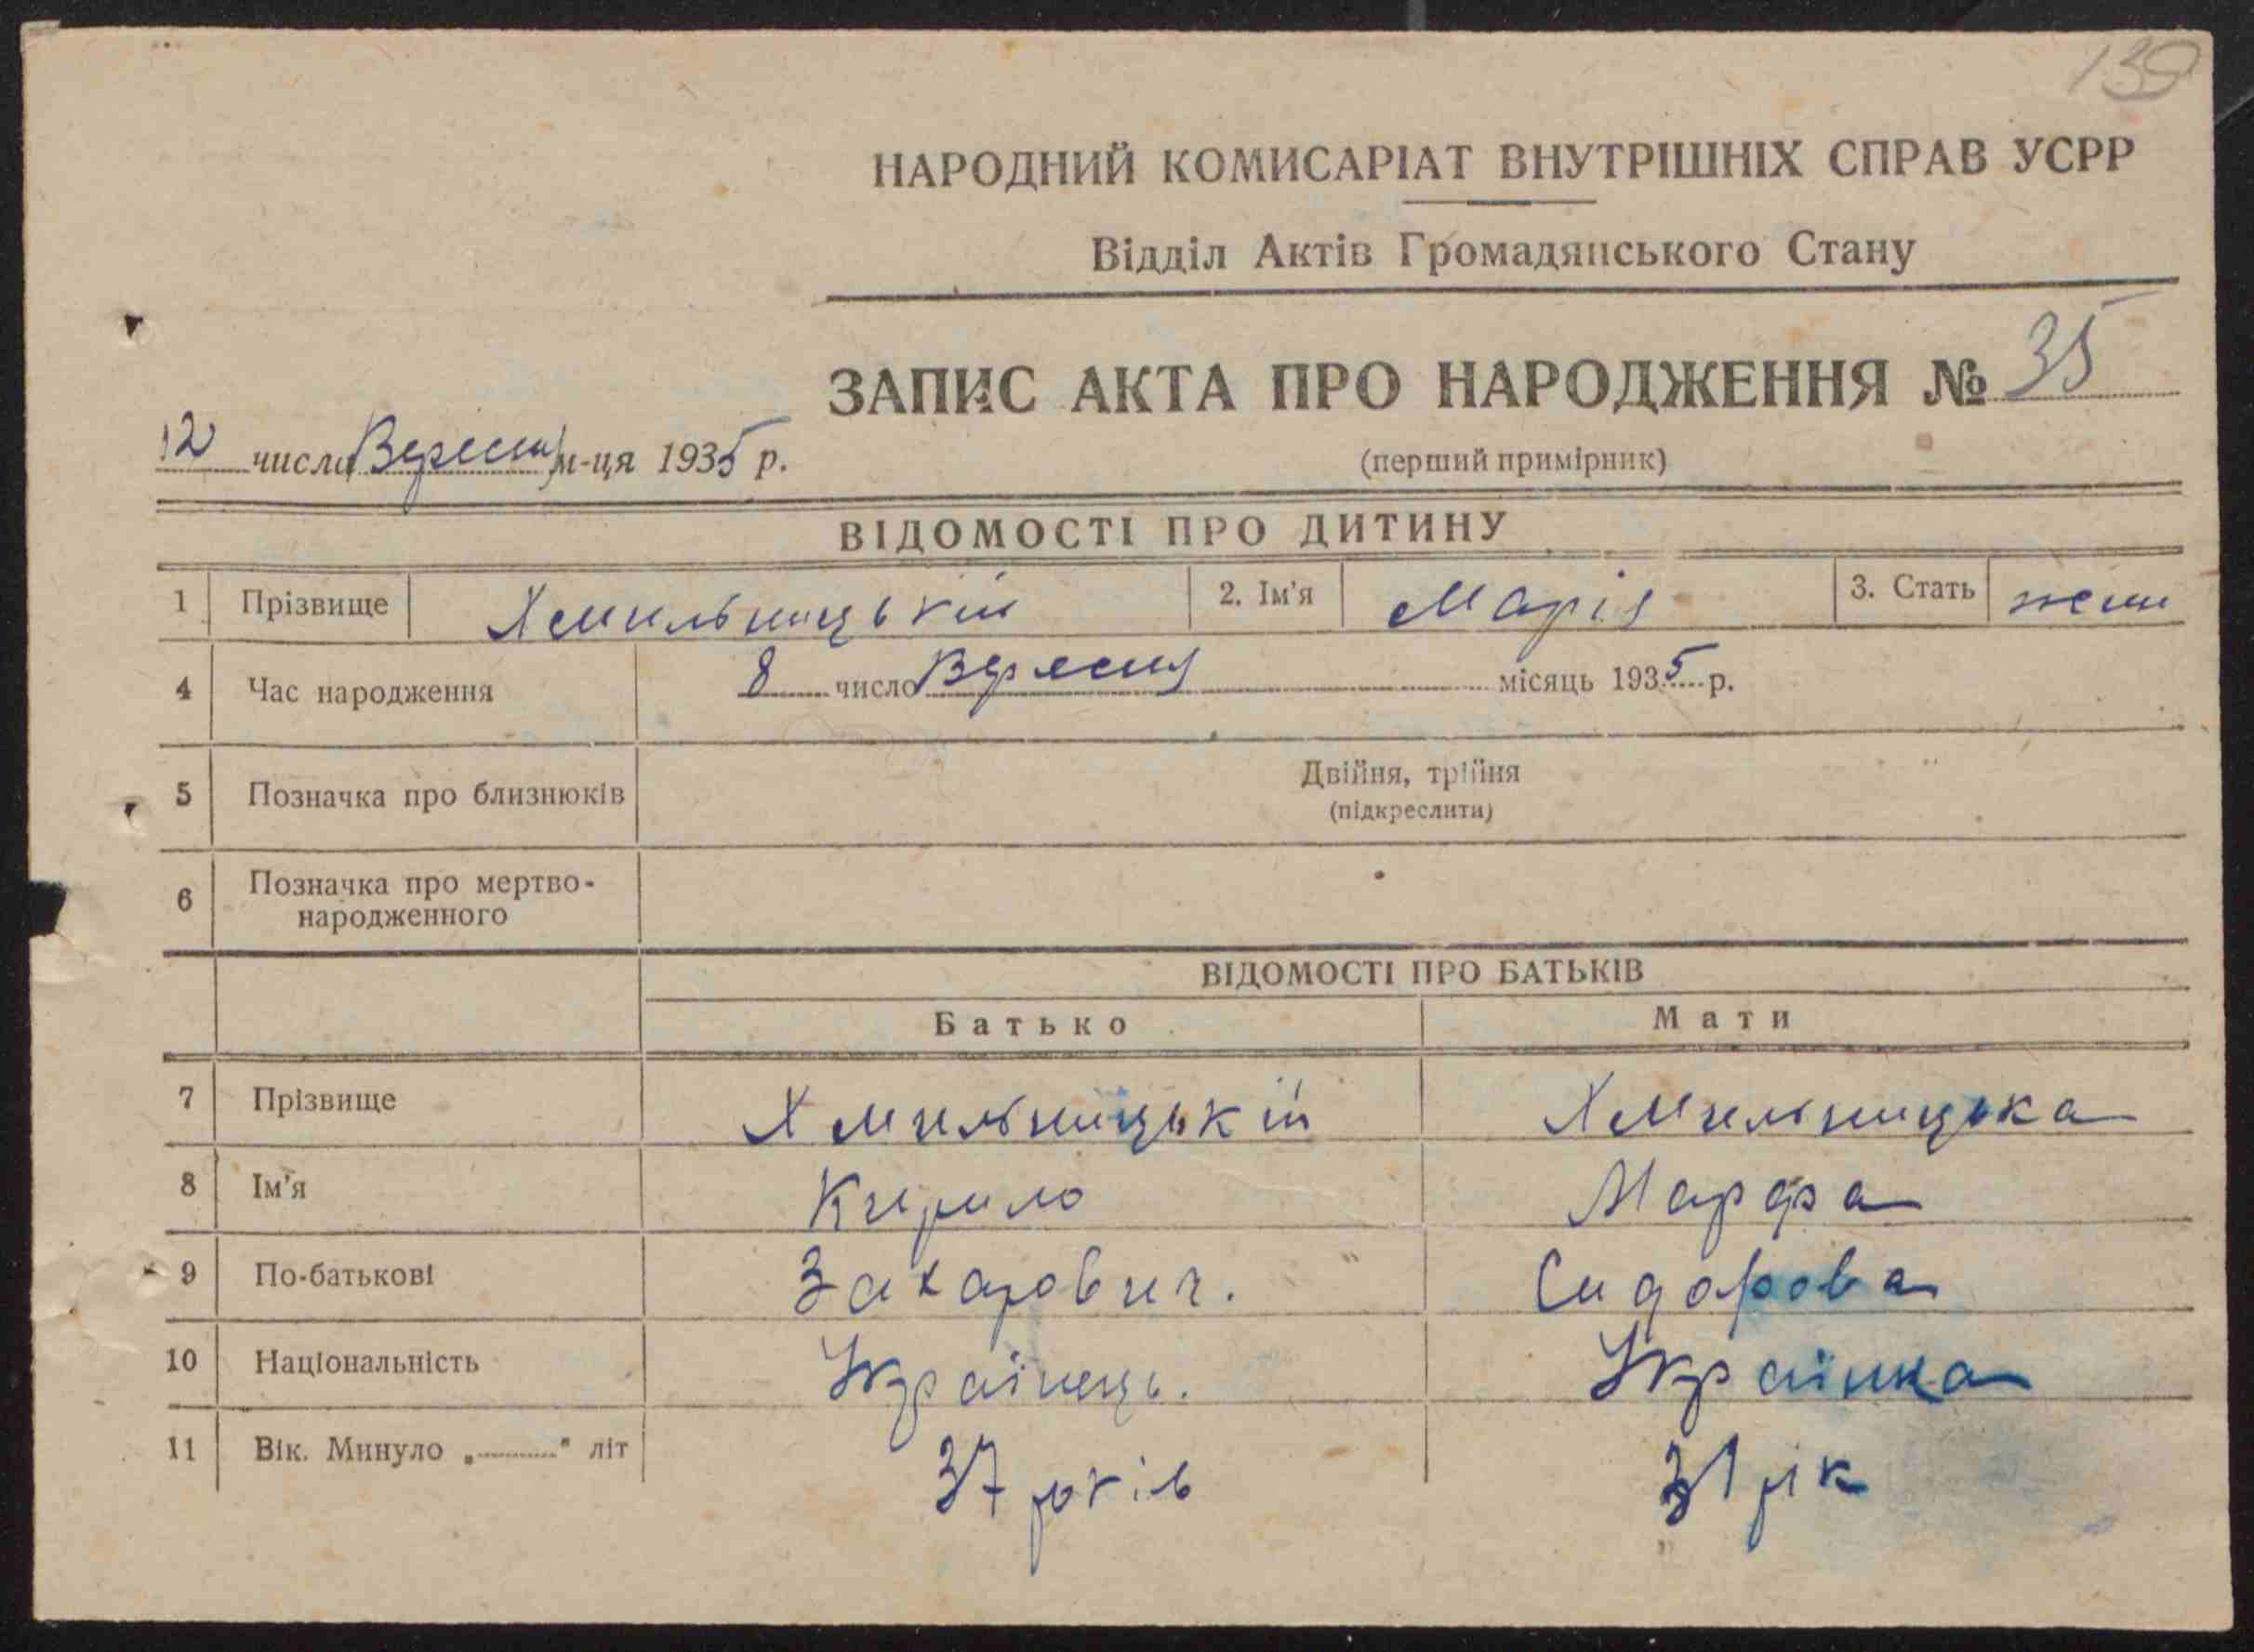 139
НАРОДНИЙ КОМИСАРІАТ ВНУТРІШНІХ СПРАВ УСРР
Відділ Актів Громадянського Стану
ЗАПИС АКТА ПРО НАРОДЖЕННЯ № 35
12 числа Вересня м-ця 1935 р.
(перший примірник)
ВІДОМОСТІ ПРО ДИТИНУ
1 Прізвище Хмильницькій 2. Ім'я Марія 3. Стать жін
4 Час народження 8 число Вересня місяць 1935 р.
5 Позначка про близнюків Двійня, трійня
(підкреслити)
6 Позначка про мертво-
народженного
ВІДОМОСТІ ПРО БАТЬКІВ
Батько Мати
7 Прізвище Хмильницькій Хмильницька
8 Ім'я Кирило Марфа
9 По-батькові Захарович. Сидорова
10 Національність Українець. Українка
11 Вік. Минуло „..........“ літ 37 років 31 рік